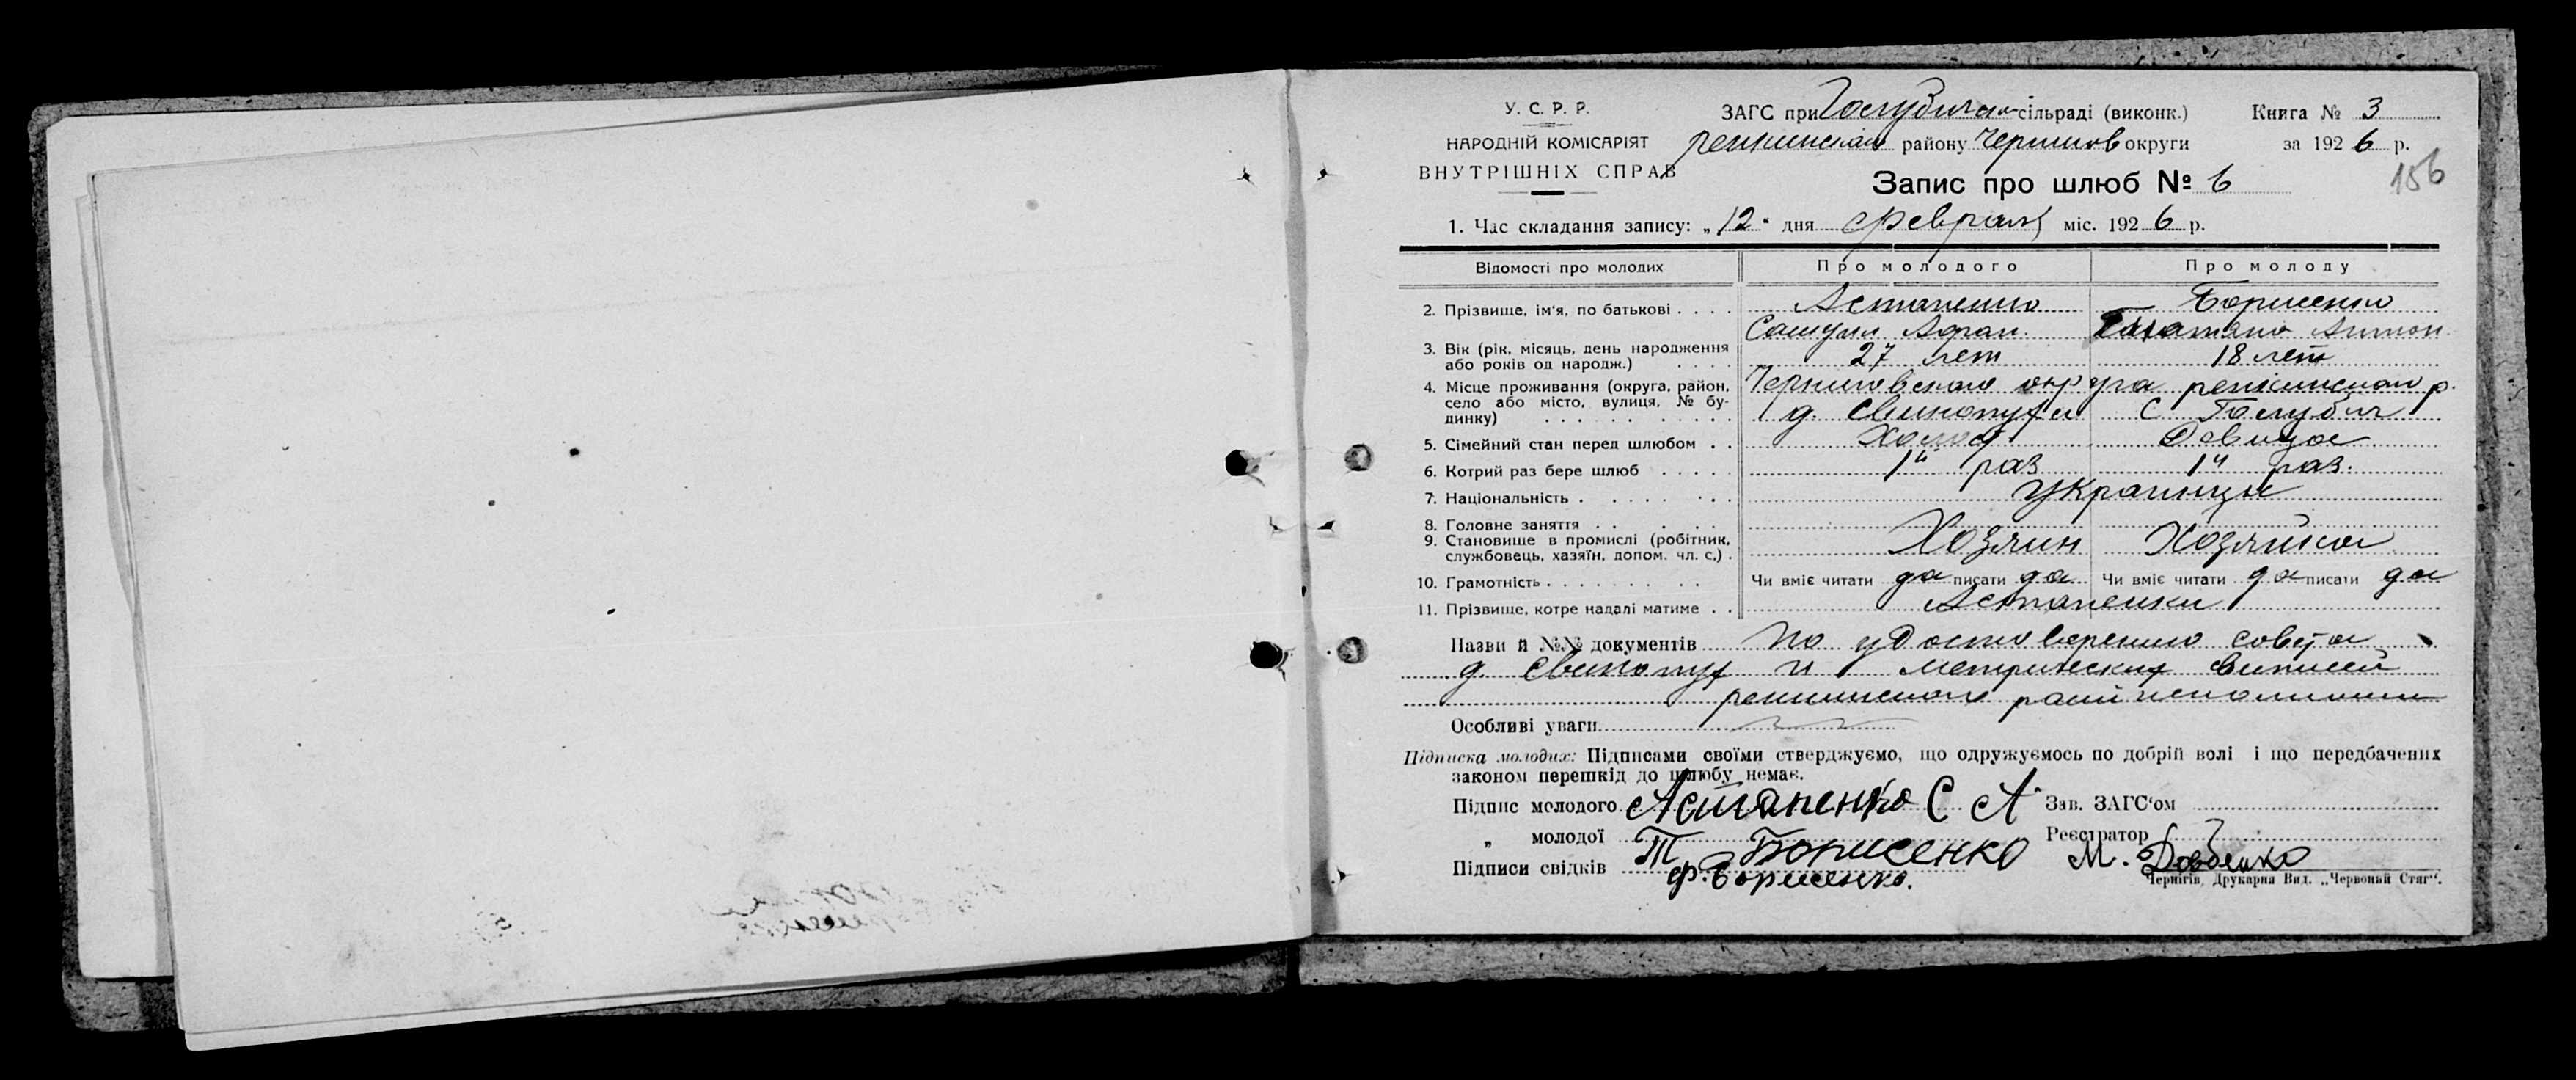 У. С. Р. Р.
НАРОДНІЙ КОМІСАРІЯТ
ВНУТРІШНІХ СПРАВ
ЗАГС при Голубичан сільраді (виконк.)
репкинского району Чернигов округи
Книга № 3
за 1926 р.
156
Запис про шлюб № 6
1. Час складання запису: „12" дня февраля міс. 1926 р.
Відомості про молодих Про молодого Про молоду
2. Прізвище, ім'я, по батькові . . . . Астапенко Борисенко
Самуил Афан. Татьяна Антон
3. Вік (рік, місяць, день народження або років од народж.) . . . . 27 лет 18 лет
4. Місце проживання (округа, район, село або місто, вулиця, № будинку) . . . . Черниговского округа репкинского р.
д. Свинопухи С Голубич
5. Сімейний стан перед шлюбом . . Холост Девица
6. Котрий раз бере шлюб . . . . . 1й раз 1й раз.
7. Національність . . . . . . . Украинцы
8. Головне заняття . . . . .
9. Становище в промислі (робітник, службовець, хазяїн, допом. чл. с.) . Хозяин Хозяйка
10. Грамотність . . . . . . . . Чи вміє читати да писати да Чи вміє читати да писати да
11. Прізвище, котре надалі матиме . . Астапенки
Назви й №№ документів По удостоверению совета
д. Свинопух и метрических выписей
репкинского
Особливі уваги
Підписка молодих: Підписами своїми стверджуємо, що одружуємось по добрій волі і що передбачених
законом перешкід до шлюбу немає.
Підпис молодого Астапенко С А Зав. ЗАГС'ом
„ молодої Т Борисенко Реєстратор
Підписи свідків Ф. Борисенко. М. Довбенко
Чернігів, Друкарня Вид. „Червоный Стяг".